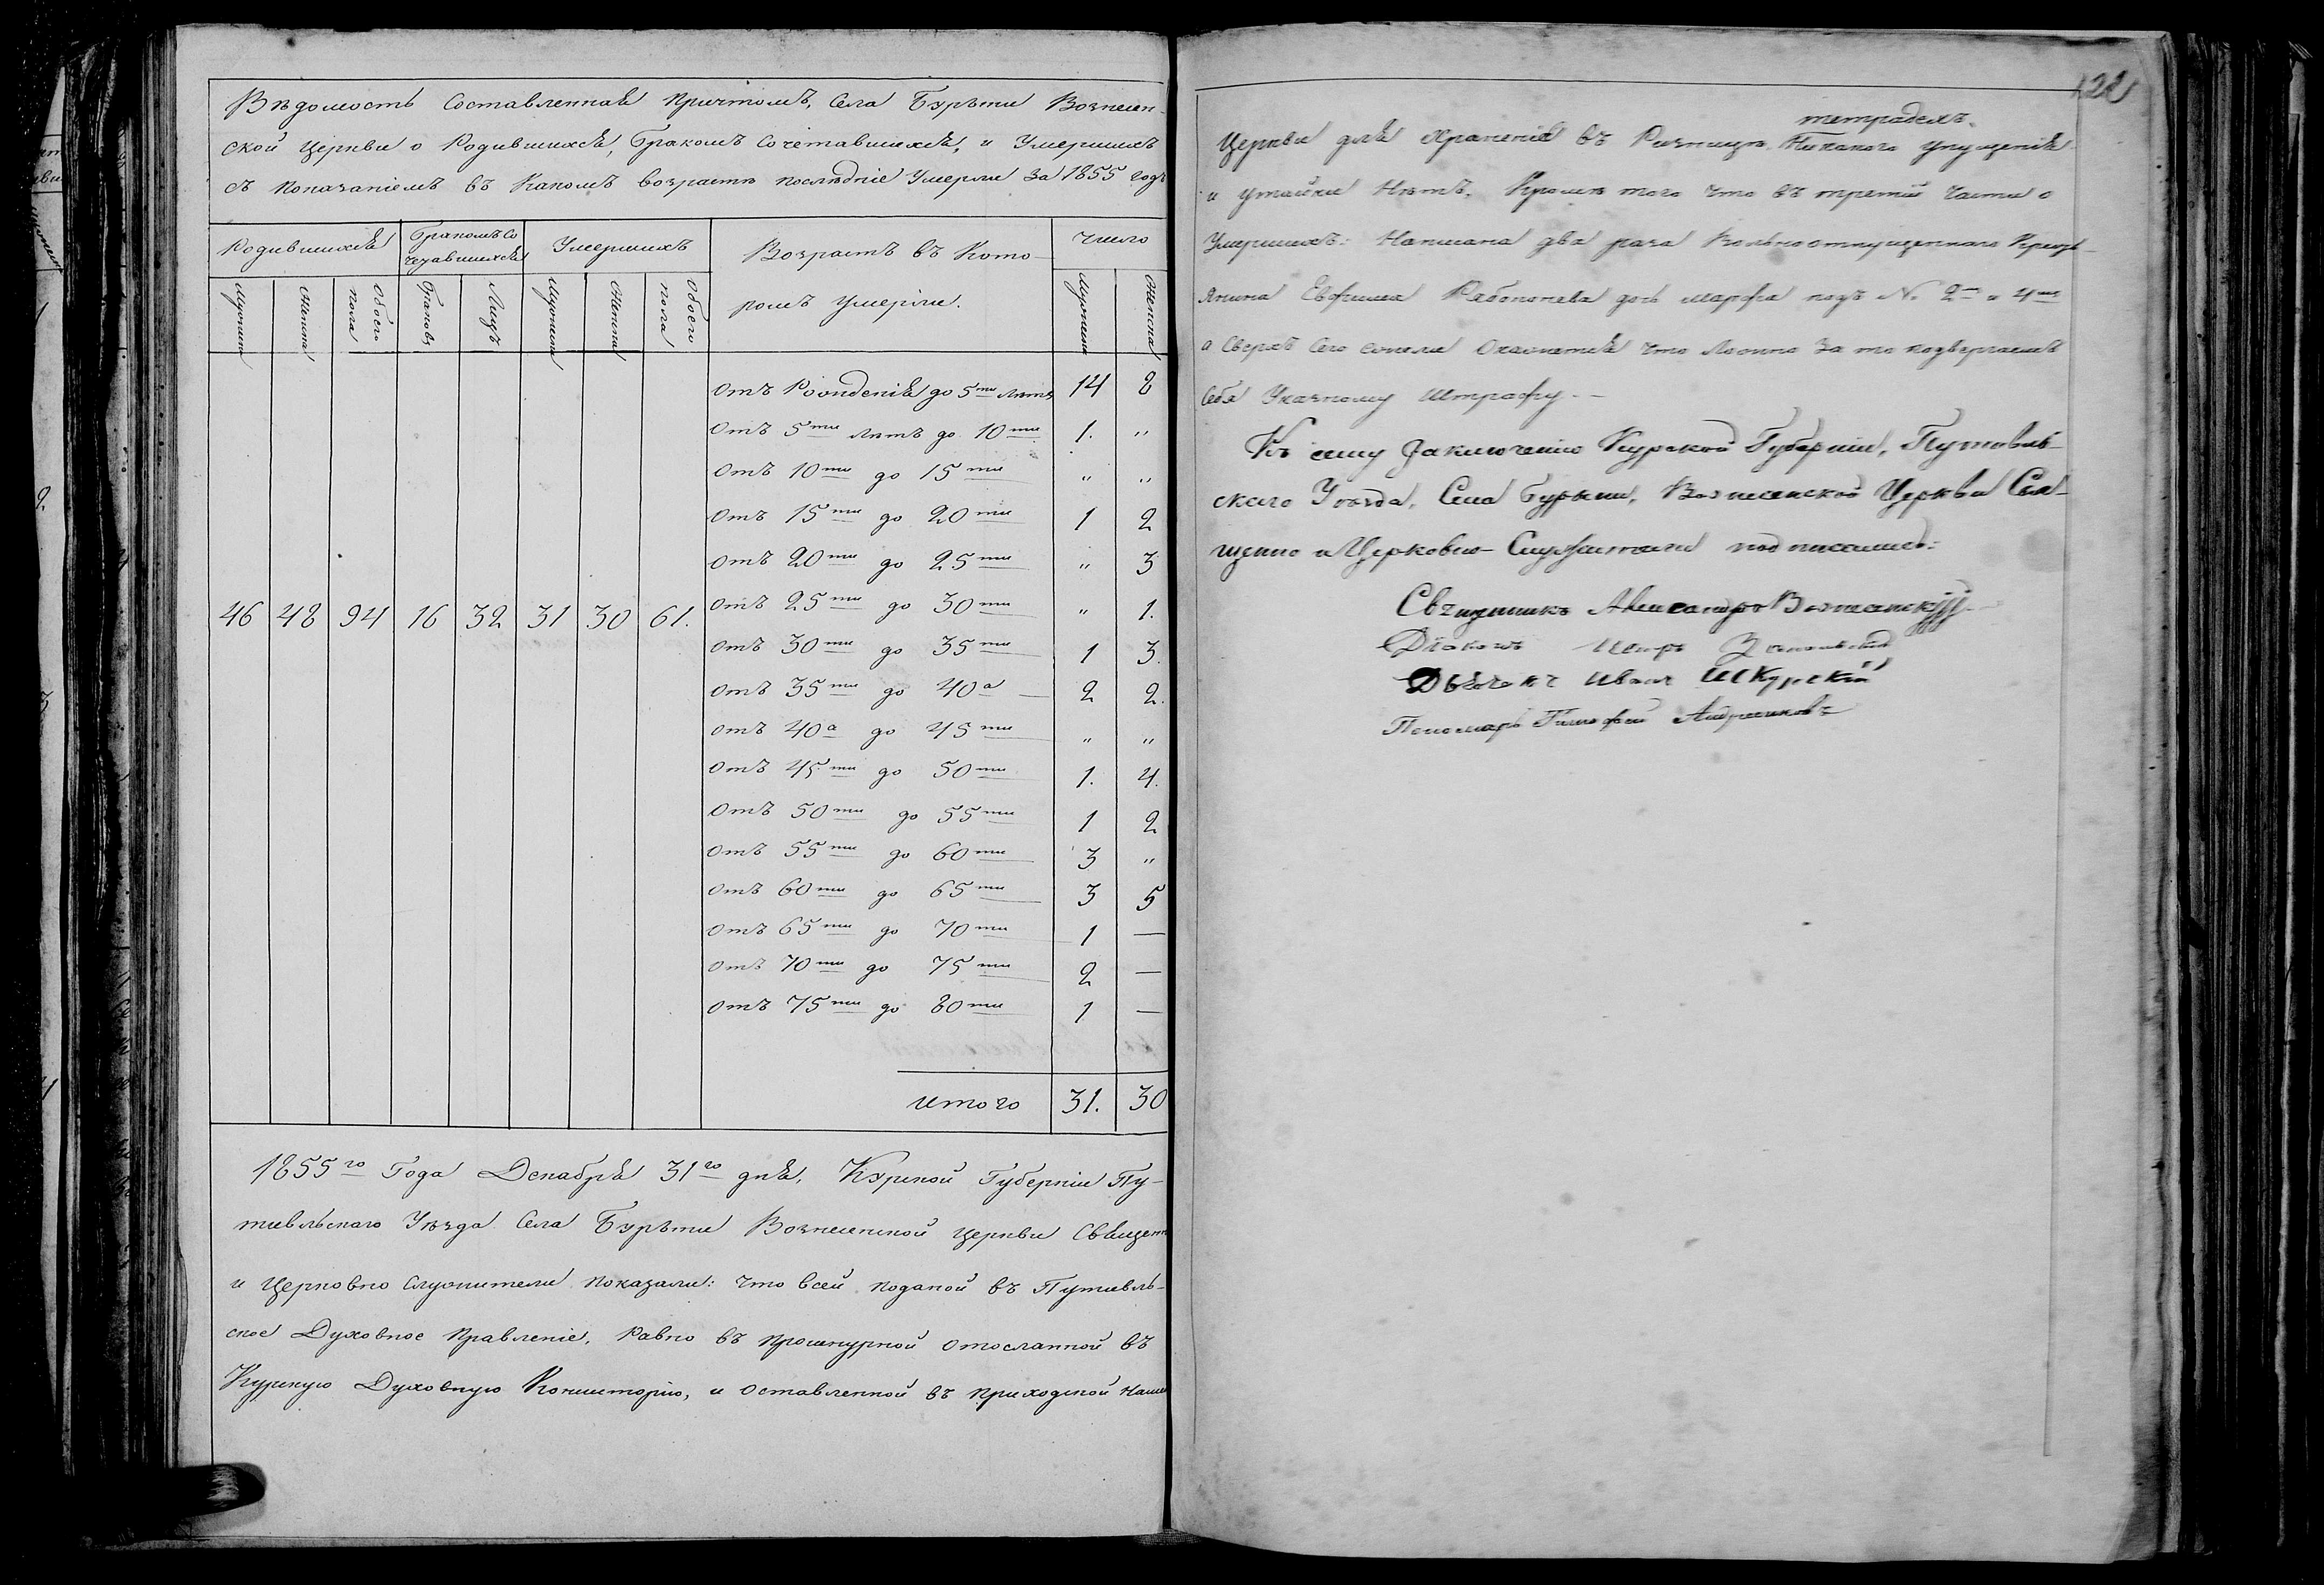 Вѣдомость Составленная Причтомъ, Села Бурыни Вознесен-
ской Церкви о Родившихся, Бракомъ Сочетавшихся, и Умершихъ
съ показаніемъ въ Какомъ возрастѣ послѣдніе Умерли За 1855 годъ
Родившихся Бракомъ Со Умершихъ Возрастъ въ Кото- Число
четавшихся
ромъ умерли.
Мужеска Женска Обоего пола Браковъ Лицъ Мужеска Женска Обоего пола Мужеска Женска
Отъ Рожденія до 5ти лѣтъ 14 8
Отъ 5ти лѣтъ до 10ти 1. "
Отъ 10ти до 15ти " "
Отъ 15ти до 20ти 1 2
Отъ 20ти до 25ти " 3
46 48 94 16 32 31 30 61.
Отъ 25ти до 30ти " 1.
Отъ 30ти до 35ти 1 3.
Отъ 35ти до 40а 2 2.
Отъ 40а до 45ти " "
Отъ 45ти до 50ти 1. 4.
Отъ 50ти до 55ти 1 2
Отъ 55ти до 60ти 3 "
Отъ 60ти до 65ти 3 5
Отъ 65ти до 70ти 1 —
Отъ 70ти до 75ти 2 —
Отъ 75ти до 80ти 1 —
Итого 31. 30
1855го Года Декабря 31го дня, Курской Губерніи Пу-
тивльскаго Уѣзда Села Бурыни Вознесенской Церкви Священно
и Церковно Служители показали: что всей поданой въ Путивль-
ское Духовное Правленіе, Равно въ прошнурной отосланной въ
Курскую Духовную Консисторію, и Оставленной въ приходской нашей
122
тетрадехъ.
Церкви для Храненія въ Ризницѣ Никакого упущенія
и утайки Нѣтъ. Кромѣ того что въ третій Части о
Умершихъ: Написана два раза Вольноотпущеннаго Кресть-
янина Евфима дочь Марфа подъ № 2м и 4мъ
а Сверхъ Сего что за то подвергаемъ
Себя Указному Штрафу.—
Къ сему Заключенію Курской Губерніи, Путивль-
скаго Уѣзда, Села Бурыни, Вознесенской Церкви Свя-
щенно и Церковно-Служители подписались:
Священникъ Александръ Вознесенскій
Діаконъ Петръ
Дьячокъ Иванъ Шкурскій
Пономарь Тимофей Андреенковъ